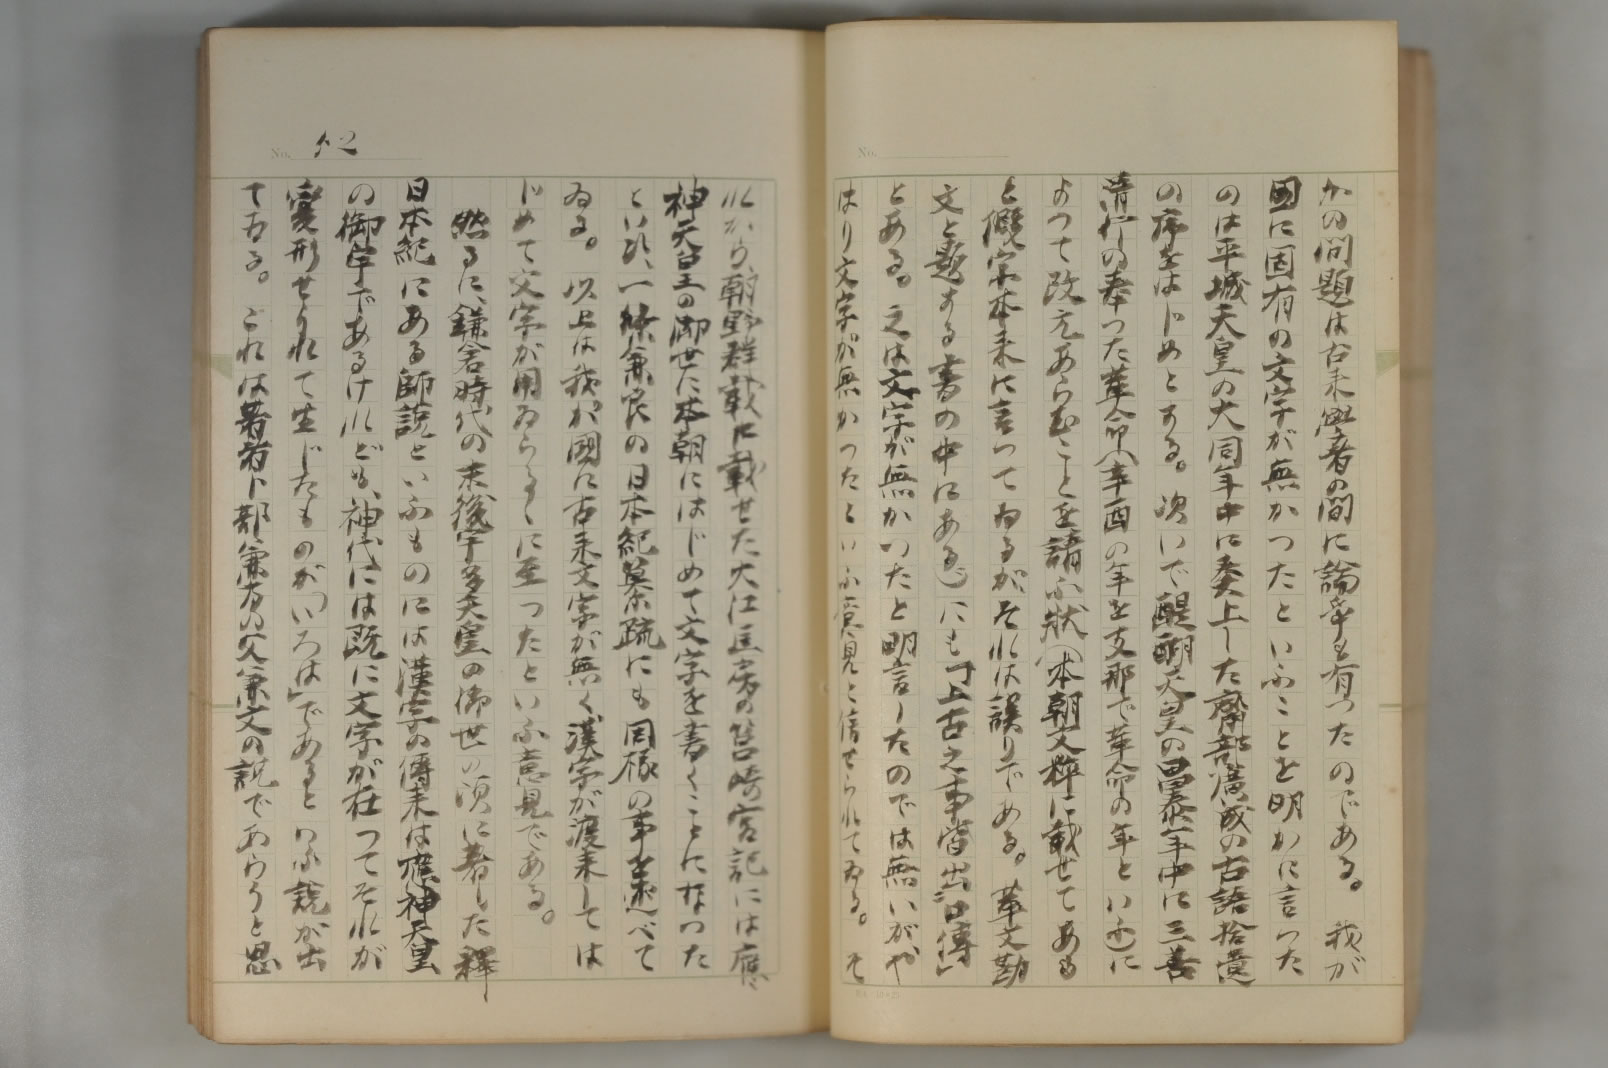 No.
かの問題は古来學者の間に論争も有つたのである。我が
國に固有の文字が無かつたといふことを明かに言つた
のは平城天皇の大同年中に奏上した齋部廣成の古語拾遺
の序をはじめとする。次いで醍醐天皇の昌泰年中に三善
清行の奉つた革命(辛酉の年を支那で革命の年といふ)に
よつて改元あらむことを請ふ状(本朝文粹に載せてある
と概家本来に言つてゐるが、それは誤りである。革文勘
文と題する書の中にある)にも「上古之事皆出口傳」
とある。之は文字が無かつたと明言したのでは無いがや
はり文字が無かつたといふ意見と信せられてゐる。そ
No. 52
れから、朝野群載に載せた大江匡房の筥崎宮記には應
神天皇の御世に本朝にはじめて文字を書くことになつた
といひ、一條兼良の日本紀纂疏にも同様の事を述べて
ゐる。以上は我が國に古来文字が無く漢字が渡来しては
じめて文字が用ゐらるゝに至つたといふ意見である。
然るに、鎌倉時代の末後宇多天皇の御世の頃に著した釋
日本紀にある師説といふものには漢字の傳来は應神天皇
の御宇であるけれども、神代には既に文字が在つてそれが
變形せられて生じたものが「いろは」であるといふ説が出
てゐる。これは著者卜部兼方の父兼文の説であらうと思